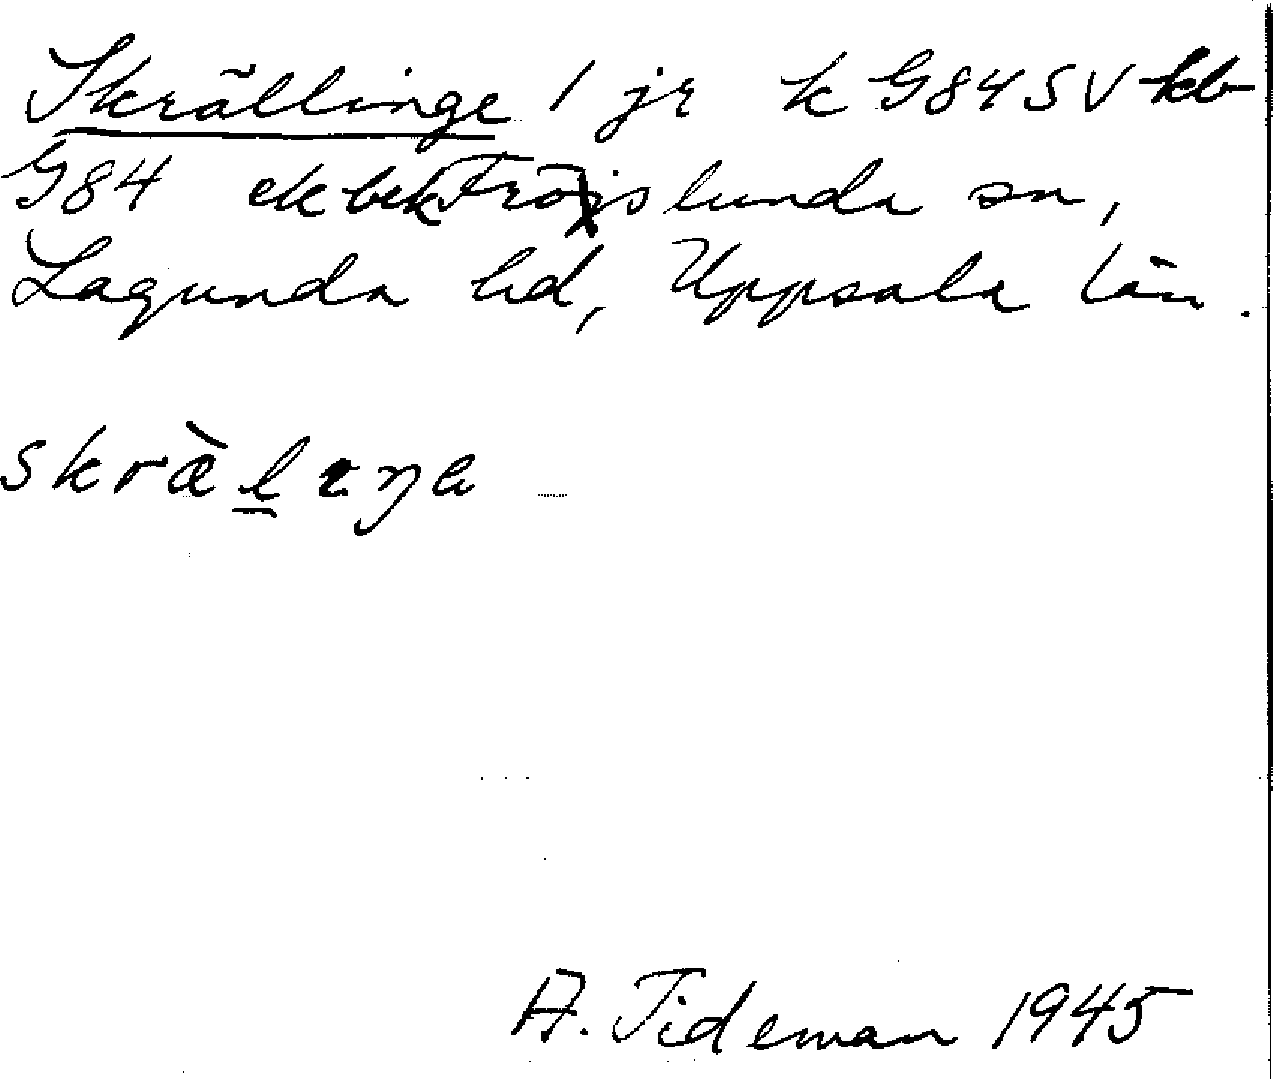 Skrällinge 1 jr k G84SV kb
G84 ek bek Fröslunda sn,
Lagunda hd, Uppsala län.
skrælıŋa
A. Tideman 1945